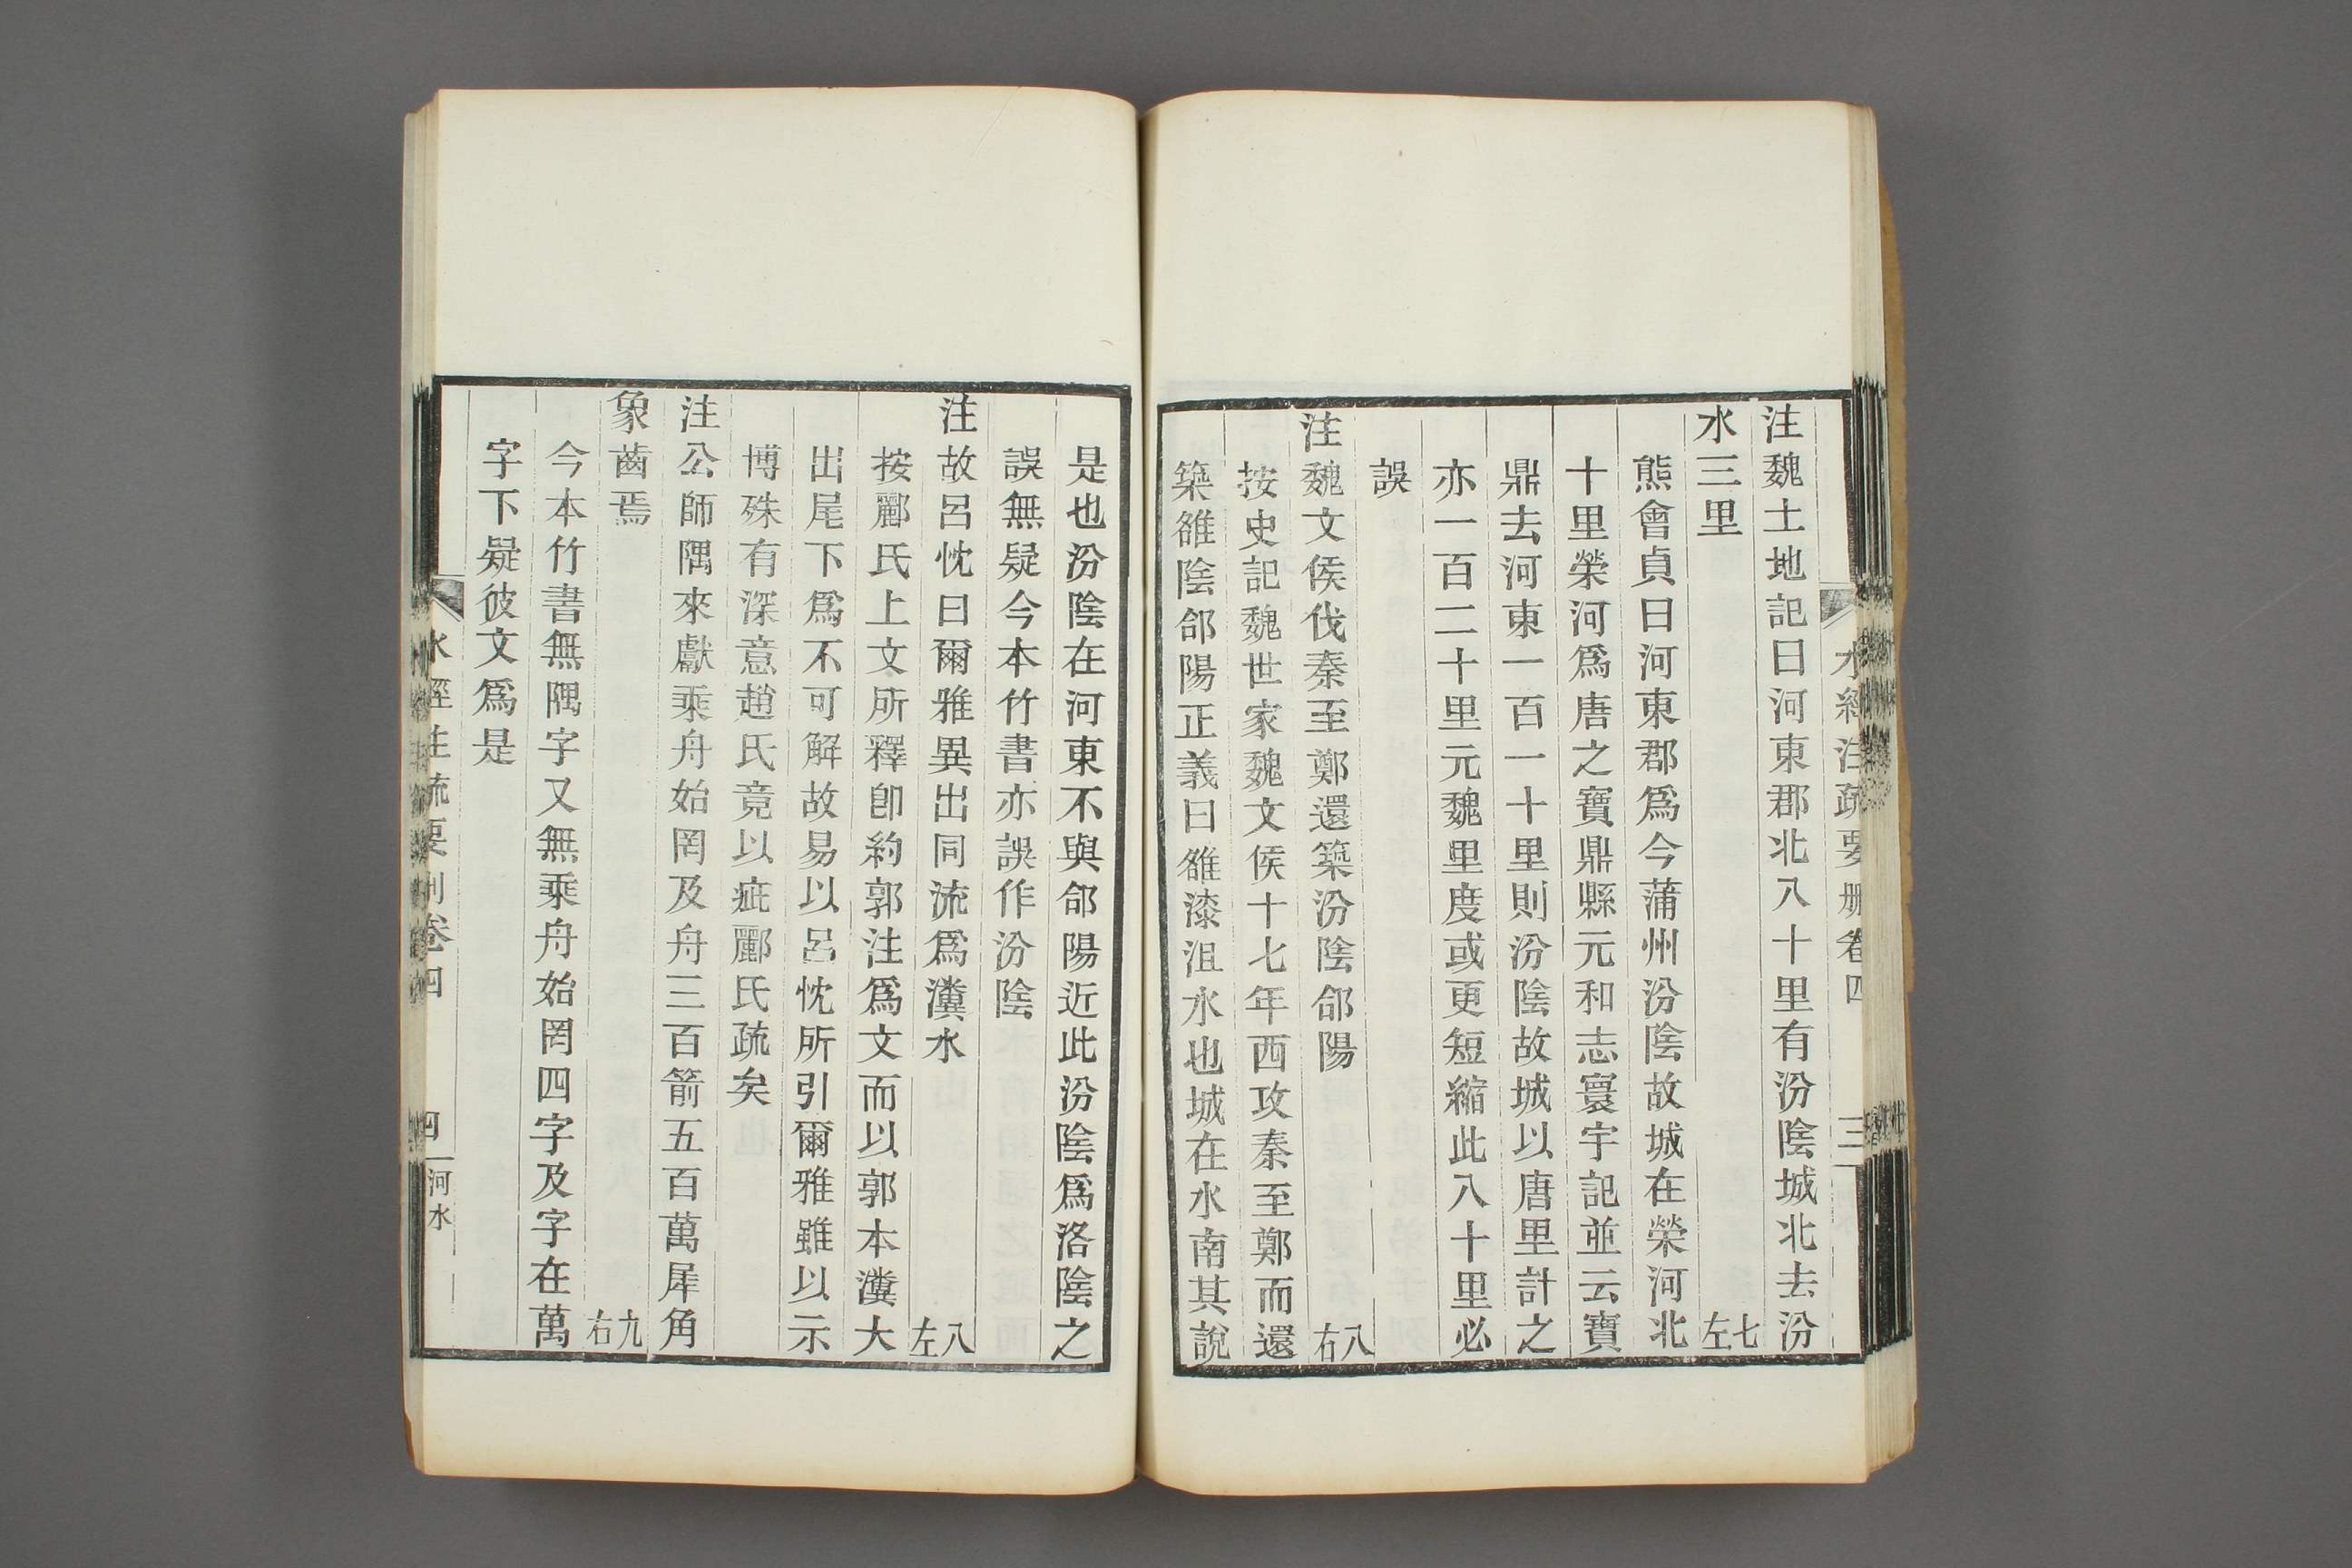 水經注疏要刪卷四 三
注魏土地記曰河東郡北八十里有汾陰城北去汾
水三里 七左
熊會貞曰河東郡爲今蒲州汾陰故城在榮河北
十里榮河爲唐之寶鼎縣元和志寰宇記並云寶
鼎去河東一百一十里則汾陰故城以唐里計之
亦一百二十里元魏里度或更短縮此八十里必
誤
注魏文侯伐秦至鄭還築汾陰郃陽 八右
按史記魏世家魏文侯十七年西攻秦至鄭而還
築雒陰郃陽正義曰雒漆沮水也城在水南其說
是也汾陰在河東不與郃陽近此汾陰爲洛陰之
誤無疑今本竹書亦誤作汾陰
注故呂忱曰爾雅異出同流爲瀵水 八左
按酈氏上文所釋卽約郭注爲文而以郭本瀵大
出尾下爲不可解故易以呂忱所引爾雅雖以示
博殊有深意趙氏竟以疵酈氏疏矣
注公師隅來獻乘舟始罔及舟三百箭五百萬犀角
象齒焉 九右
今本竹書無隅字又無乘舟始罔四字及字在萬
字下疑彼文爲是
水經注疏要刪卷四 四 河水